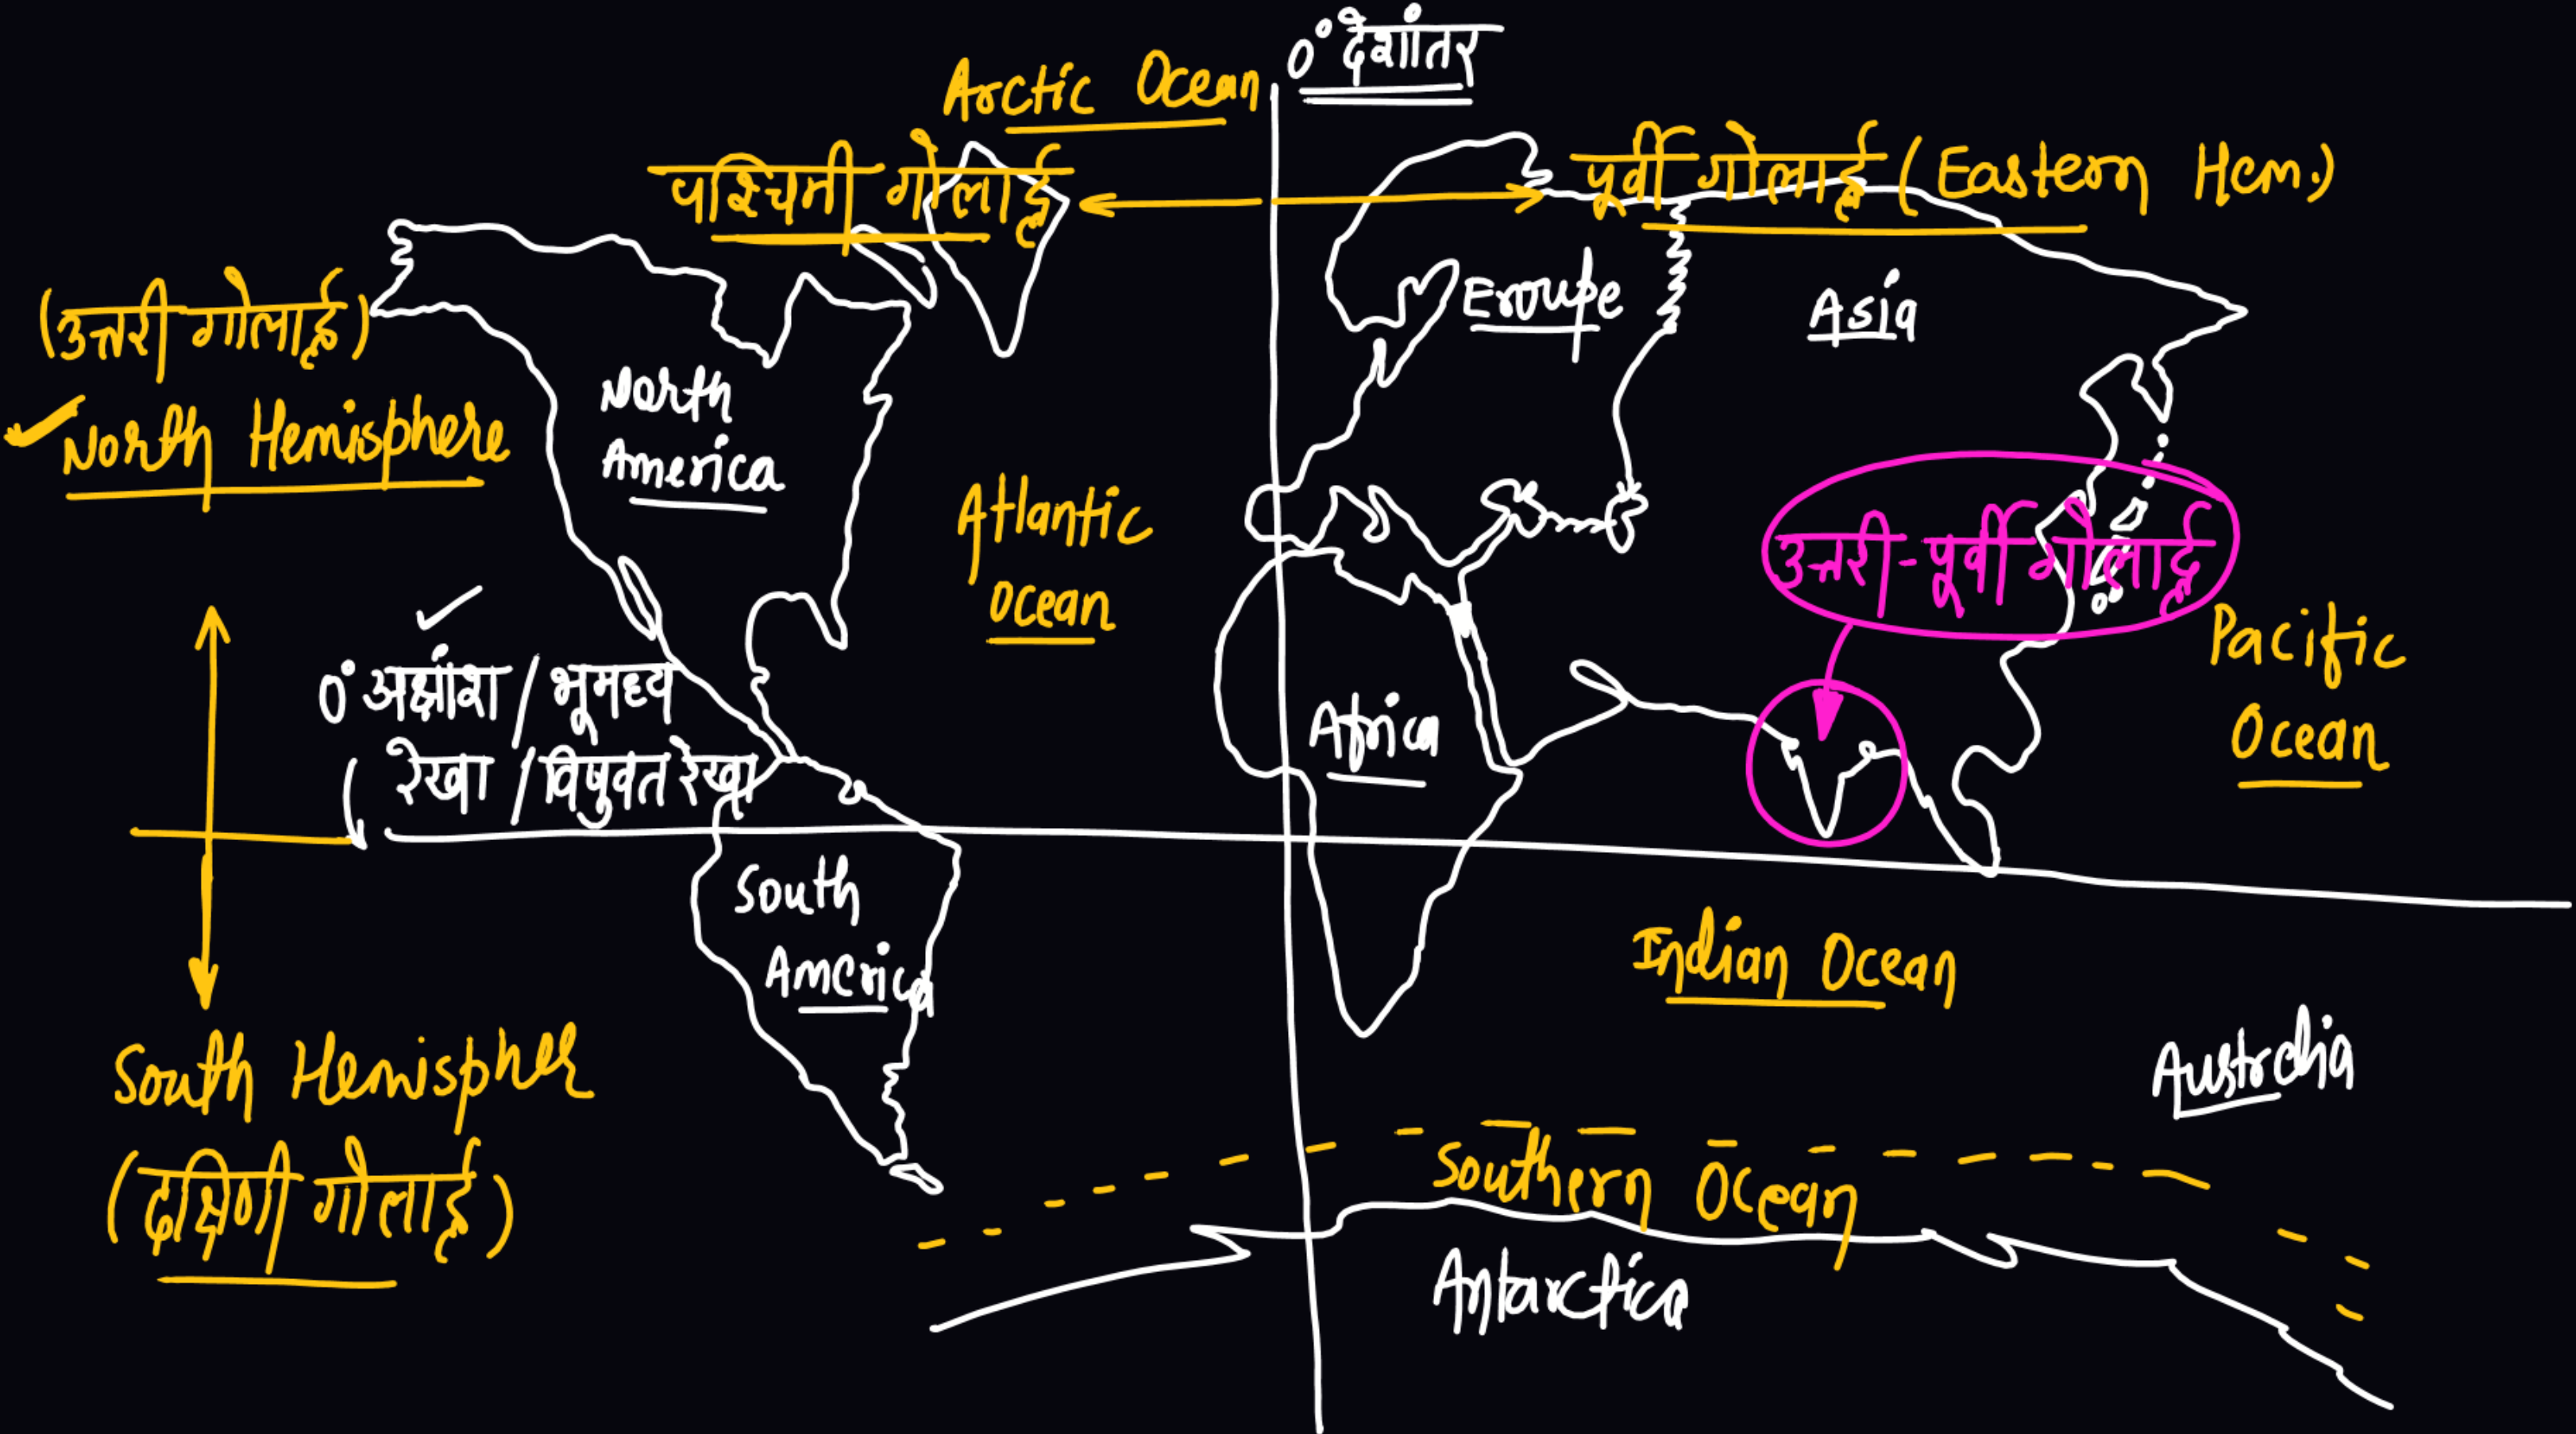 0° देशांतर
Arctic Ocean
पश्चिमी गोलार्द्ध
पूर्वी गोलार्द्ध (Eastern Hem.)
(उत्तरी गोलार्द्ध)
North Hemisphere
North
America
Eroupe
Asia
Atlantic
Ocean
उत्तरी-पूर्वी गोलार्द्ध
Pacific
Ocean
0° अक्षांश / भूमध्य
रेखा / विषुवत रेखा
Africa
South
America
Indian Ocean
Australia
South Hemispher
(दक्षिणी गोलार्द्ध)
Southern Ocean
Antarctica